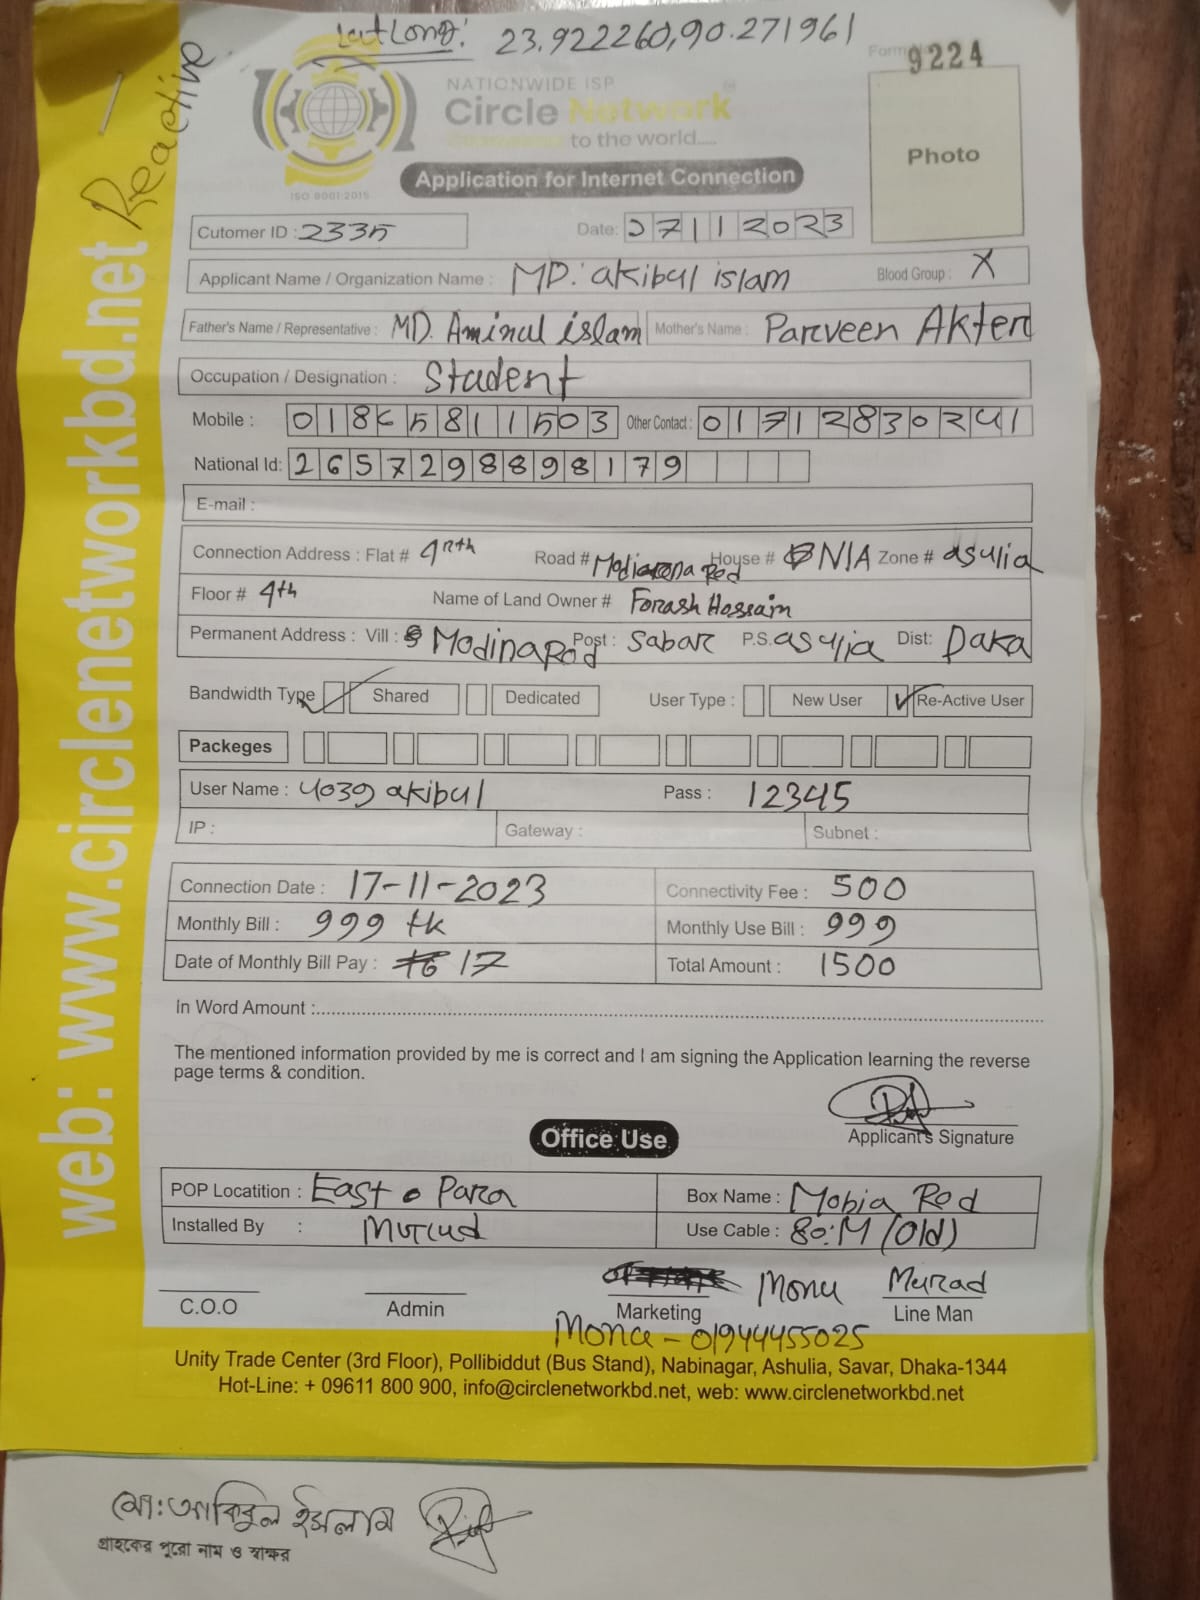 Lat Long: 23.922260,90.271961
Reactive
Form 9224
NATIONWIDE ISP
Circle Network
to the world....
ISO 9001:2015
Photo
Application for Internet Connection
Cutomer ID : 2335
Date: 07112023
Applicant Name / Organization Name : MD. akibul islam Blood Group : X
Father's Name / Representative : MD. Aminul islam Mother's Name : Parveen Akter
Occupation / Designation : Student
Mobile : 01865811503 Other Contact : 01712830241
National Id: 2657298898179
E-mail :
Connection Address : Flat # Road # House # N/A Zone # asulia
Floor # 4th Name of Land Owner # Forash Hossain
Permanent Address : Vill : Modina Rod Post : Sabar P.S. asulia Dist: Daka
Bandwidth Type Shared Dedicated User Type : New User ✓ Re-Active User
Packeges
User Name : 4039 akibul Pass : 12345
IP : Gateway : Subnet :
Connection Date : 17-11-2023 Connectivity Fee : 500
Monthly Bill : 999 tk Monthly Use Bill : 999
Date of Monthly Bill Pay : 17 Total Amount : 1500
In Word Amount :
The mentioned information provided by me is correct and I am signing the Application learning the reverse
page terms & condition.
Applicant's Signature
Office Use
POP Locatition : East Para Box Name : Mobia Rod
Installed By : Murad Use Cable : 80:M (Old)
C.O.O Admin Marketing Monu Murad Line Man
Mona - 01944455025
Unity Trade Center (3rd Floor), Pollibiddut (Bus Stand), Nabinagar, Ashulia, Savar, Dhaka-1344
Hot-Line: + 09611 800 900, info@circlenetworkbd.net, web: www.circlenetworkbd.net
web: www.circlenetworkbd.net
মো: আকিবুল ইসলাম
গ্রাহকের পুরো নাম ও স্বাক্ষর